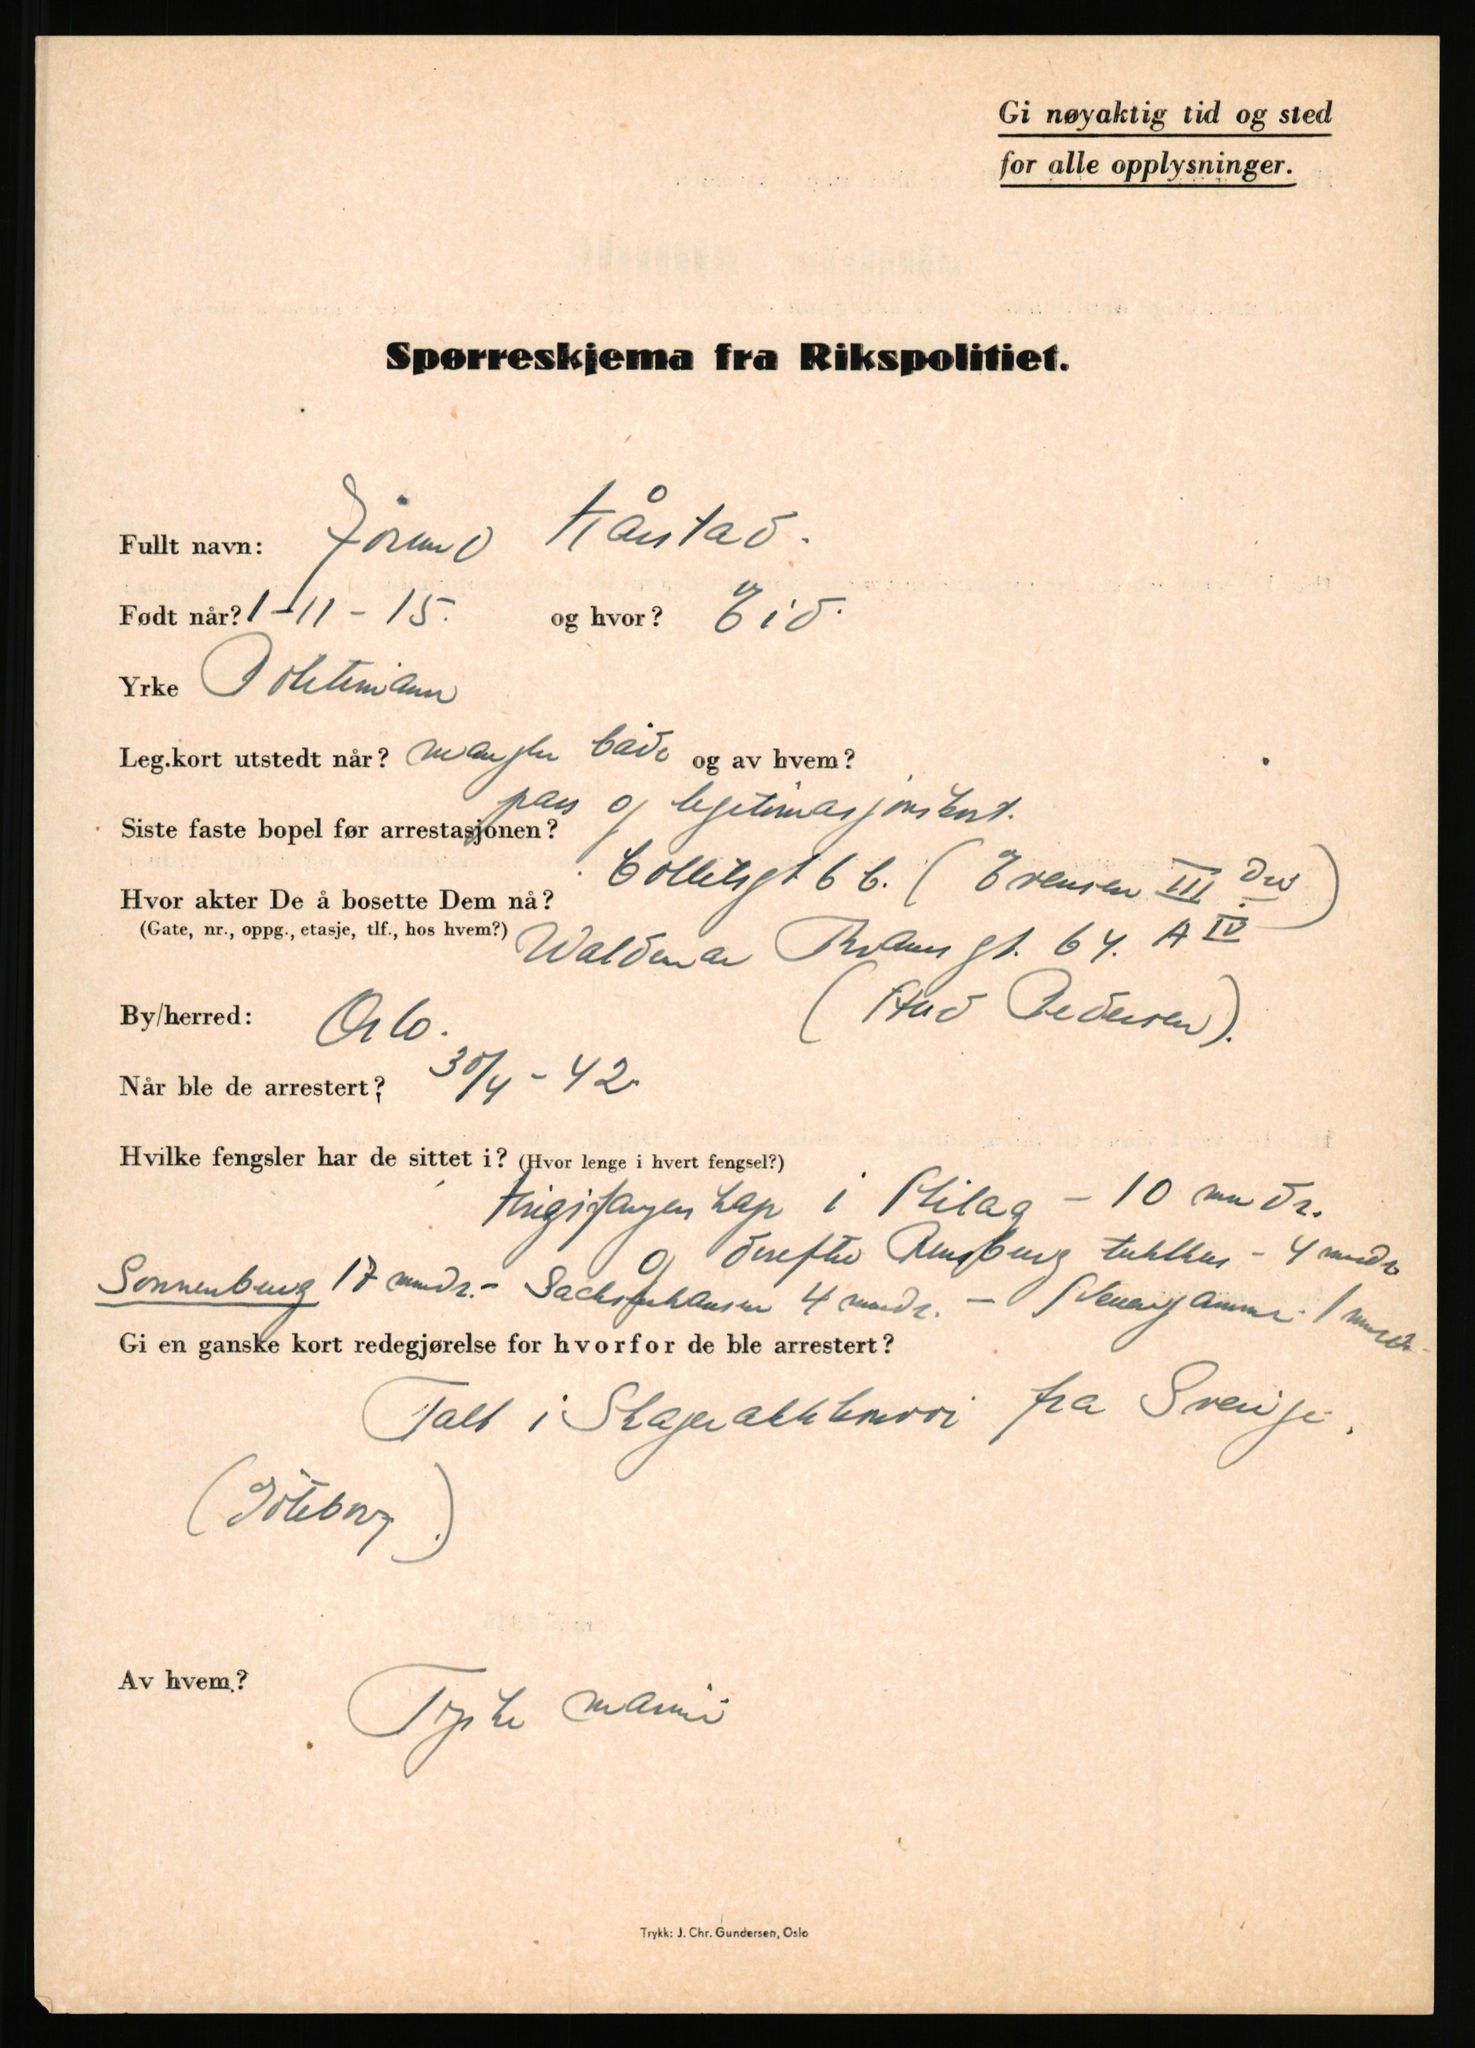 Gi nøyaktig tid og sted
for alle opplysninger.
Spørreskjema fra Rikspolitiet.
Fullt navn: Jörund Kårstad.
Født når? 1-11-15. og hvor? Eid.
Yrke Politimann
Leg.kort utstedt når? mangler både og av hvem?
pass og legitimasjonskort.
Siste faste bopel før arrestasjonen?
Colletsgt 6 b. ( Evensen III
Hvor akter De å bosette Dem nå?
(Gate, nr., oppg., etasje, tlf., hos hvem?) Waldemar Thranes gt. 64. A IV
(Stud Pedersen).
By/herred: Oslo.
Når ble de arrestert? 30/4 - 42
Hvilke fengsler har de sittet i? (Hvor lenge i hvert fengsel?)
Krigsfangenskap i Stilag - 10 mndr.
og derefter Rensburg tukthus - 4 mndr
Sonnenburg 17 mndr. - Sachsenhausen 4 mndr. - 1 mnd
Gi en ganske kort redegjørelse for hvorfor de ble arrestert?
Tatt i Skagerakkonvoi fra Sverige.
(Göteborg.)
Av hvem? Tyske marine
Trykk: J. Chr. Gundersen, Oslo